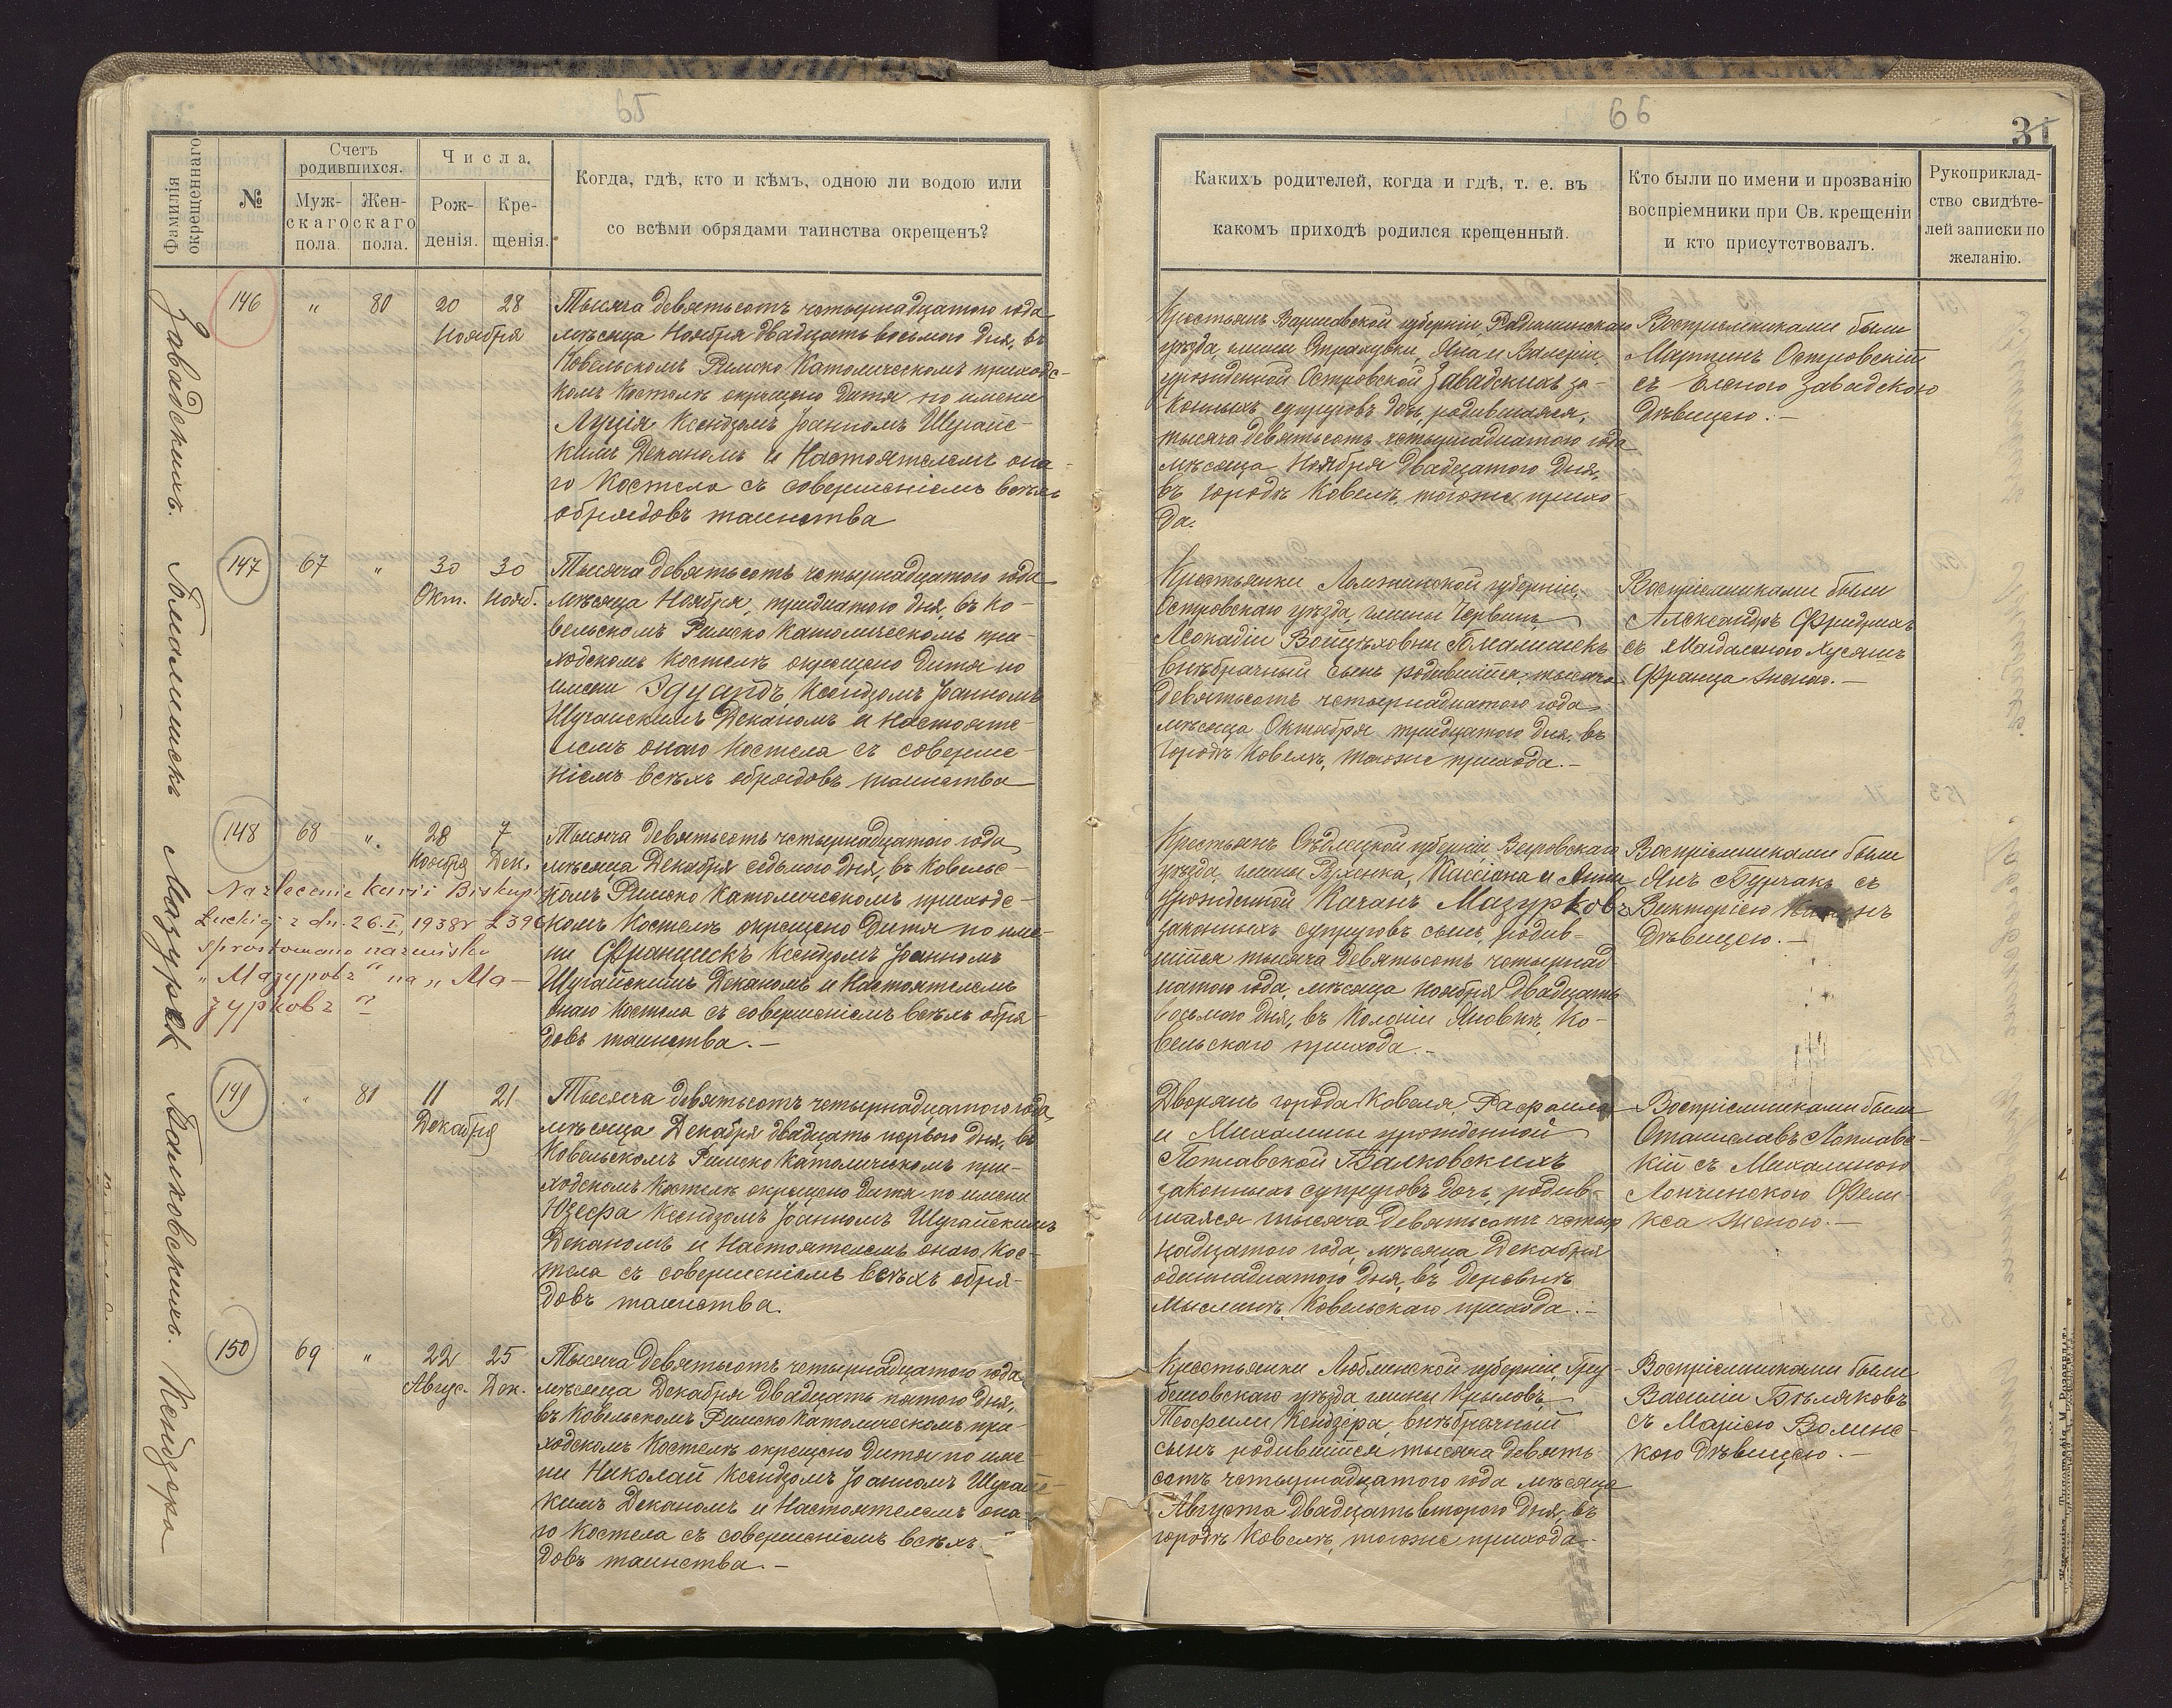 65
Фамилія
окрещеннаго
№
Счетъ
родившихся.
Муж-
скаго
пола.
Жен-
скаго
пола.
Числа.
Рож-
денія.
Кре-
щенія.
Когда, гдѣ, кто и кѣмъ, одною ли водою или
со всѣми обрядами таинства окрещенъ?
Завадскихъ.
146
"
80
20
28
Ноября
Тысяча девятьсотъ четырнадцатого года
мѣсяца Ноября двадцать восьмого дня, въ
Ковельскомъ Римско Католическомъ приходс-
комъ Костелѣ окрещено дитя по имени
Луція Ксендзомъ Іоанномъ Шугайс-
кимъ Деканомъ и Настоятелемъ она-
го Костела съ совершеніемъ всѣхъ
обрядовъ таинства
147
67
"
30
30
Окт.
Нояб.
Тысяча девятьсотъ четырнадцатого года
мѣсяца Ноября, тридцатого дня, въ Ко-
вельскомъ Римско Католическомъ при-
ходскомъ Костелѣ окрещено дитя по
имени Эдуардъ Ксендзомъ Іоанномъ
Шугайскимъ Деканомъ и Настояте-
лемъ онаго Костела съ соверше-
ніемъ всѣхъ обрядовъ таинства
Мазурек
148
68
"
28
7
Ноября
Дек.
Тысяча девятьсотъ четырнадцатого года
мѣсяца Декабря седьмого дня, въ Ковельс-
комъ Римско Католическомъ приходс-
комъ Костелѣ окрещено дитя по име-
ни Францискъ Ксендзомъ Іоанномъ
Шугайскимъ Деканомъ и Настоятелемъ
онаго Костела съ совершеніемъ всѣхъ обря-
довъ таинства.-
Na zlecenie kurii Biskupi
Łuckiej z dn. 26.I.1938r Ł 396
sprostowano nazwisko
"Мазуровъ" na "Ма-
зурковъ"
Валковскихъ.
149
"
81
11
21
Декабря
Тысяча девятьсотъ четырнадцатого года,
мѣсяца Декабря двадцать первого дня, въ
Ковельскомъ Римско Католическомъ при-
ходскомъ Костелѣ окрещено дитя по имени
Юзефа Ксендзомъ Іоанномъ Шугайскимъ
Деканомъ и Настоятелемъ онаго Кос-
тела съ совершеніемъ всѣхъ обря-
довъ таинства.
Кендзера
150
69
"
22
25
Авгус.
Дек.
Тысяча девятьсотъ четырнадцатого года
мѣсяца Декабря двадцать пятого дня,
въ Ковельскомъ Римско Католическомъ при-
ходскомъ Костелѣ окрещено дитя по име-
ни Николай Ксендзомъ Іоанномъ Шугайс-
кимъ Деканомъ и Настоятелемъ она-
го Костела съ совершеніемъ всѣхъ
довъ таинства.-
66
31
Какихъ родителей, когда и гдѣ, т. е. въ
какомъ приходѣ родился крещенный.
Кто были по имени и прозванію
воспріемники при Св. крещеніи
и кто присутствовалъ.
Рукоприклад-
ство свидѣте-
лей записки по
желанію.
Крестьянъ Варшавской губерніи, Радиминскаго
уѣзда, гмины Страхувки, Яна и Валеріи,
урожденной Островской Завадскихъ за-
конныхъ супруговъ дочь, родившаяся,
тысяча девятьсотъ четырнадцатого года
мѣсяца Ноября двадцатого дня,
въ городѣ Ковелѣ, тогоже прихо-
да.
Воспріемниками были
Мартинъ Островскій
съ Еленою Завадскою
Дѣвицею.-
Крестьянки Ломжинской губерніи,
Островскаго уѣзда, гмины Червинъ
Леокадіи Войцѣховны
внѣбрачный сынъ родившійся, тысяча
девятьсотъ четырнадцатого года
мѣсяца Октября тридцатого дня, въ
городѣ Ковелѣ, тогоже прихода.-
Воспріемниками были
Александръ Фридрихъ
съ Магдаленою
Франца женою.-
Крестьянъ Сѣдлецкой губерніи Венгровскаго
уѣзда, гмины Ружанка, Кассіана и Анны
урожденной Каганъ Мазурковъ
законныхъ супруговъ сынъ, родив-
шійся тысяча девятьсотъ четырнад
цатого года, мѣсяца Ноября двадцать
восьмого дня, въ Колоніи Яновкѣ, Ко-
вельскаго прихода.-
Воспріемниками были
Янъ Бурчакъ съ
Викторіею
Дѣвицею.-
Дворянъ города Ковеля, Рафаила
и Михалины урожденной
Лотлавской Валковскихъ
законныхъ супруговъ дочь, родив-
шаяся тысяча девятьсотъ четыр
надцатого года, мѣсяца Декабря
одиннадцатого дня, въ деревнѣ
Мыслинѣ, Ковельскаго прихода.-
Воспріемниками были
Станиславъ Лотлавс-
кій съ Михалиною
Лончинскою Фели-
кса женою.-
Крестьянки Люблинской губерніи, Гру-
бешовскаго уѣзда гмины Крыловъ,
Теофили Кендзера, внѣбрачный
сынъ родившійся тысяча девять-
сотъ четырнадцатого года мѣсяца
Августа двадцать второго дня, въ
городѣ Ковелѣ, тогоже прихода-
Воспріемниками были
Василій Бѣляковъ
съ Маріею Волинс-
кою Дѣвицею.-